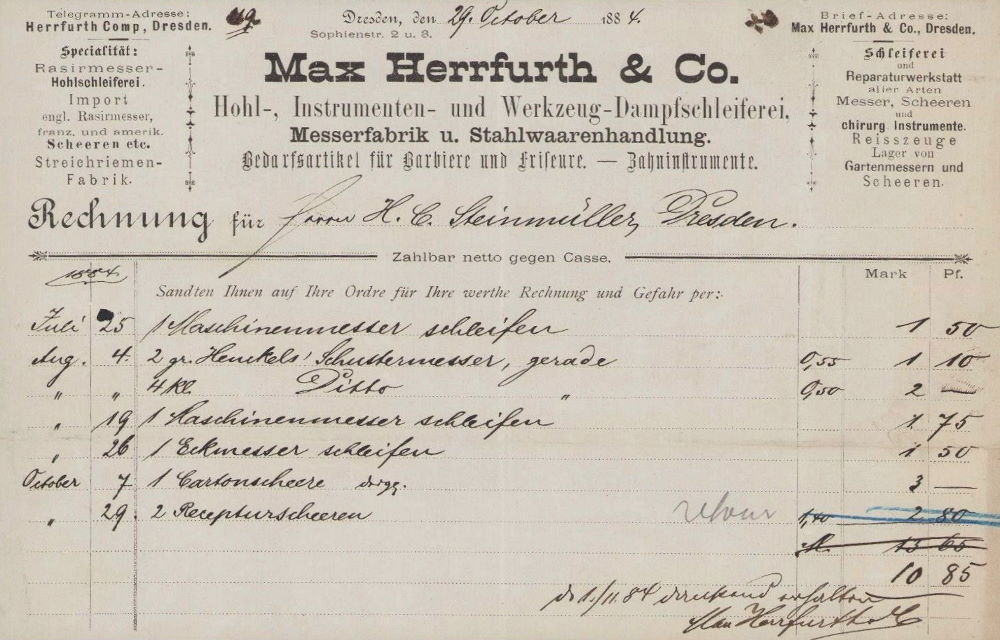 Telegramm-Adresse:
Herrfurth Comp, Dresden.
Dresden, den 29. October 1884.
Sophienstr. 2 u. 3.
Brief-Adresse:
Max Herrfurth & Co., Dresden.
Specialität:
Rasirmesser-
Hohlschleiferei.
Import
engl. Rasirmesser,
franz. und amerik.
Scheeren etc.
Streichriemen-
Fabrik.
Max Herrfurth & Co.
Hohl-, Instrumenten- und Werkzeug-Dampfschleiferei,
Messerfabrik u. Stahlwaarenhandlung.
Bedarfsartikel für Barbiere und Friseure. — Zahninstrumente.
Schleiferei
und
Reparaturwerkstatt
aller Arten
Messer, Scheeren
und
chirurg. Instrumente.
Reisszeuge
Lager von
Gartenmessern und
Scheeren.
Rechnung für Herrn H. C. Steinmüller, Dresden.
Zahlbar netto gegen Casse.
1884 Mark Pf.
Sandten Ihnen auf Ihre Ordre für Ihre werthe Rechnung und Gefahr per:
Juli 25 1 Maschinenmesser schleifen 1 50
Aug. 4. 2 gr. Henckels' Schustermesser, gerade 0,55 1 10
" " 4 kl. Ditto " 0,50 2 —
" 19 1 Maschinenmesser schleifen 1 75
" 26 1 Eckmesser schleifen 1 50
October 7 1 Cartonscheere 3 —
" 29. 2 Recepturscheeren retour 1,40 2 80
M. 13 65
10 85
d. 1./11. 84 dankend erhalten
Max Herrfurth & C